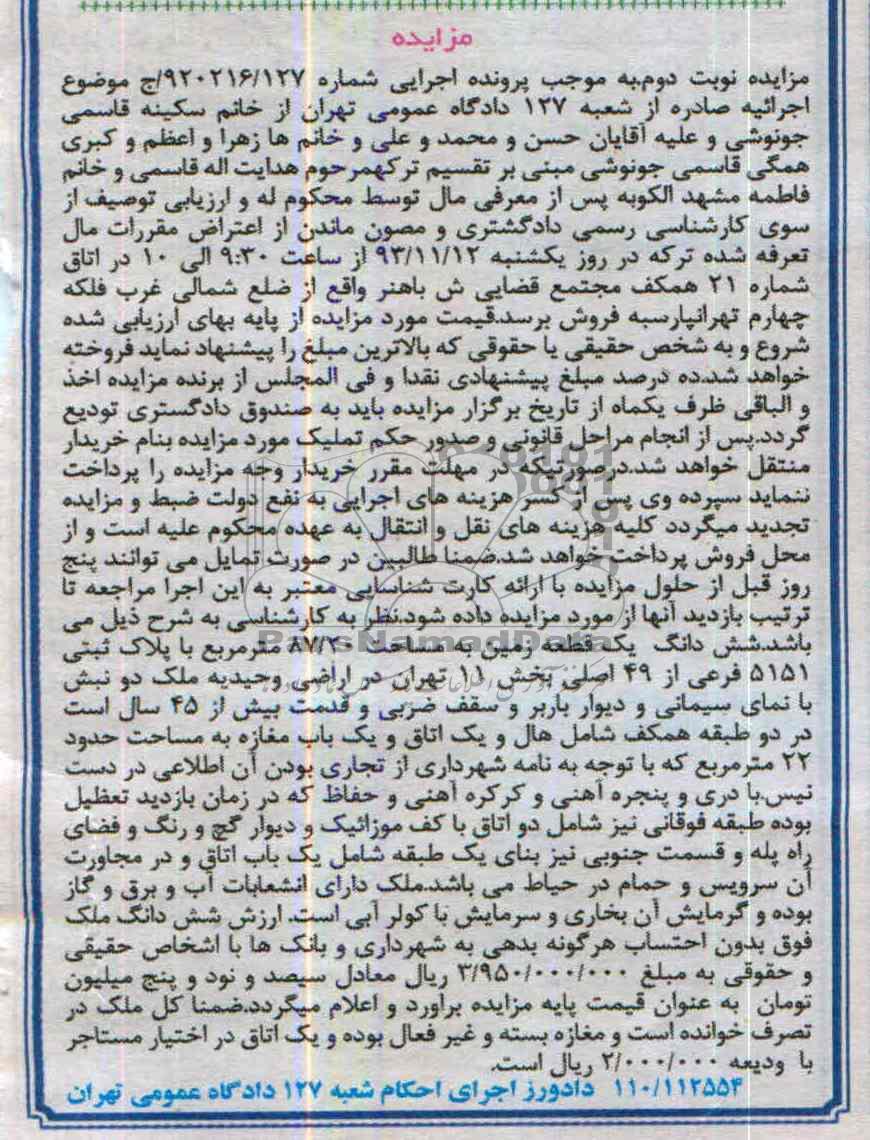 مزایده
مزایده نوبت دوم.به موجب پرونده اجرایی شماره ۹۲۰۲۱۶/۱۲۷/ج موضوع
اجرائیه صادره از شعبه ۱۲۷ دادگاه عمومی تهران از خانم سکینه قاسمی
جونوشی و علیه آقایان حسن و محمد و علی و خانم ها زهرا و اعظم و کبری
همگی قاسمی جونوشی مبنی بر تقسیم ترکهمرحوم هدایت اله قاسمی و خانم
فاطمه مشهد الکوبه پس از معرفی مال توسط محکوم له و ارزیابی توصیف از
سوی کارشناسی رسمی دادگشتری و مصون ماندن از اعتراض مقررات مال
تعرفه شده ترکه در روز یکشنبه ۹۳/۱۱/۱۲ از ساعت ۹:۳۰ الی ۱۰ در اتاق
شماره ۲۱ همکف مجتمع قضایی ش باهنر واقع از ضلع شمالی غرب فلکه
چهارم تهرانپارسبه فروش برسد.قیمت مورد مزایده از پایه بهای ارزیابی شده
شروع و به شخص حقیقی یا حقوقی که بالاترین مبلغ را پیشنهاد نماید فروخته
خواهد شد.ده درصد مبلغ پیشنهادی نقدا و فی المجلس از برنده مزایده اخذ
و الباقی ظرف یکماه از تاریخ برگزار مزایده باید به صندوق دادگستری تودیع
گردد.پس از انجام مراحل قانونی و صدور حکم تملیک مورد مزایده بنام خریدار
منتقل خواهد شد.درصورتیکه در مهلت مقرر خریدار وجه مزایده را پرداخت
ننماید سپرده وی پس از کسر هزینه های اجرایی به نفع دولت ضبط و مزایده
تجدید میگردد کلیه هزینه های نقل و انتقال به عهده محکوم علیه است و از
محل فروش پرداخت خواهد شد.ضمنا طالبین در صورت تمایل می توانند پنج
روز قبل از حلول مزایده با ارائه کارت شناسایی معتبر به این اجرا مراجعه تا
ترتیب بازدید آنها از مورد مزایده داده شود.نظر به کارشناسی به شرح ذیل می
باشد.شش دانگ یک قطعه زمین به مساحت مترمربع با پلاک ثبتی
۵۱۵۱ فرعی از ۴۹ اصلی بخش ۱۱ تهران در اراضی وحیدیه ملک دو نبش
با نمای سیمانی و دیوار باربر و سقف ضربی و قدمت بیش از ۴۵ سال است
در دو طبقه همکف شامل هال و یک اتاق و یک باب مغازه به مساحت حدود
۲۲ مترمربع که با توجه به نامه شهرداری از تجاری بودن آن اطلاعی در دست
نیس.با دری و پنجره آهنی و کرکره آهنی و حفاظ که در زمان بازدید تعطیل
بوده طبقه فوقانی نیز شامل دو اتاق با کف موزائیک و دیوار گچ و رنگ و فضای
راه پله و قسمت جنوبی نیز بنای یک طبقه شامل یک باب اتاق و در مجاورت
آن سرویس و حمام در حیاط می باشد.ملک دارای انشعابات آب و برق و گاز
بوده و گرمایش آن بخاری و سرمایش با کولر آبی است. ارزش شش دانگ ملک
فوق بدون احتساب هرگونه بدهی به شهرداری و بانک ها با اشخاص حقیقی
و حقوقی به مبلغ ۳/۹۵۰/۰۰۰/۰۰۰ ریال معادل سیصد و نود و پنج میلیون
تومان به عنوان قیمت پایه مزایده براورد و اعلام میگردد.ضمنا کل ملک در
تصرف خوانده است و مغازه بسته و غیر فعال بوده و یک اتاق در اختیار مستاجر
با ودیعه ۲/۰۰۰/۰۰۰ ریال است.
۱۱۰/۱۱۲۵۵۴ دادورز اجرای احکام شعبه ۱۲۷ دادگاه عمومی تهران
ParsNamadData